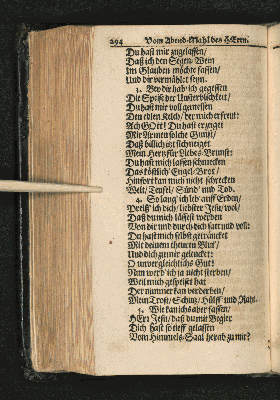 294 Vom Abend-Mahl des HErrn.
Du hast mir zugelassen/
Daß ich den Segen-Wein
Im Glauben möchte fassen/
Und dir vermählet seyn.
3. Bey dir hab ich gegessen
Die Speise der Unsterblichkeit/
Du hast mir voll gemessen
Den edlen Kelch/ der mich erfreut:
Ach GOtt! Du hast erzeiget
Mir Armen solche Gunst/
Daß billich ist
Mein Hertz für Liebes-Brunst:
Du hast mich lassen schmecken
Das köstlich' Engel-Brot/
Hinfort kan mich nicht schrecken
Welt/ Teufel/ Sünd' und Tod.
4. So lang' ich leb' auff Erden/
Preiß' ich dich/ liebster Jesu/ wol/
Daß du mich lässest werden
Von dir und durch dich satt und voll:
Du hast mich selbst geträncket
Mit deinem theuren Blut/
Und dich zu mir gelencket:
O unvergleichlichs Gut!
Nun werd' ich ja nicht sterben/
Weil mich gespeiset hat
Der nimmer kan verderben/
Mein Trost/ Schutz/ Hülff' und Raht.
5. Wie kan ichs aber fassen/
HErr Jesu/ daß du mit Begier
Dich hast so tieff gelassen
Vom Himmels-Saal herab zu mir?